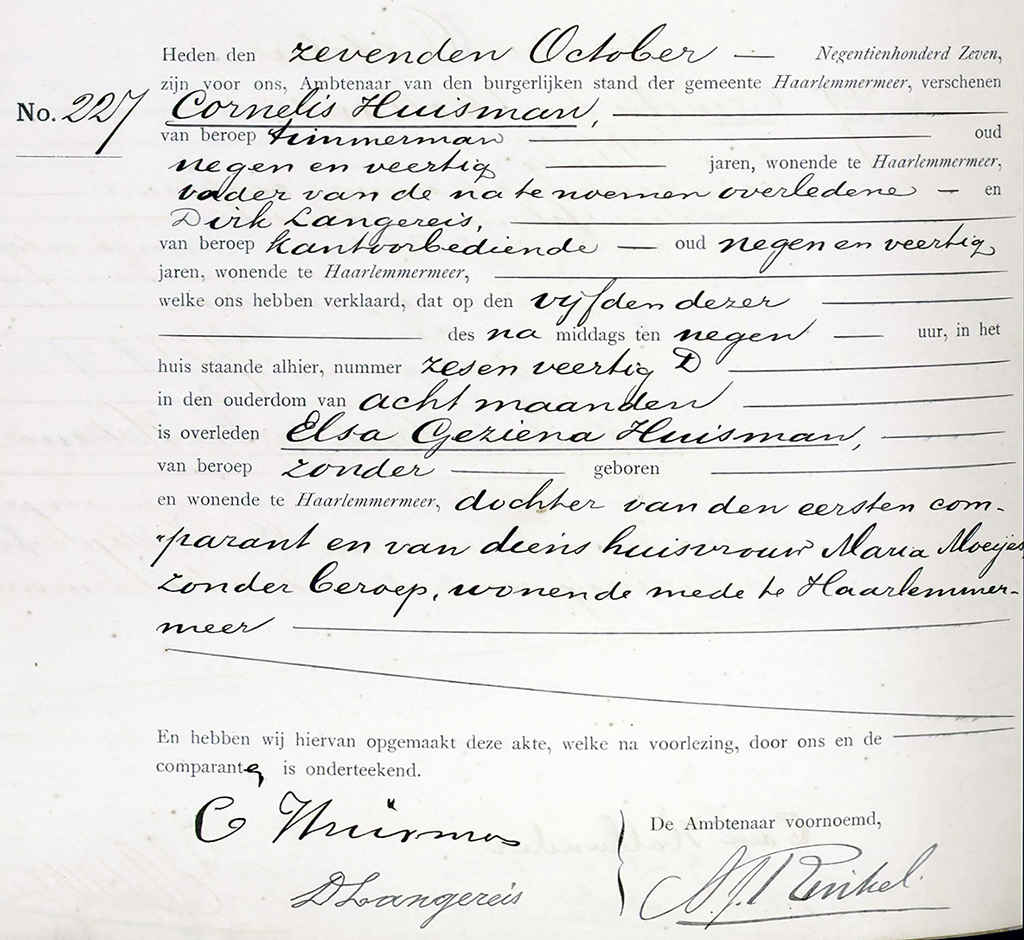 Heden den zevenden October — Negentienhonderd Zeven,
zijn voor ons, Ambtenaar van den burgerlijken stand der gemeente Haarlemmermeer, verschenen
No. 227 Cornelis Huisman,
van beroep timmerman oud
negen en veertig jaren, wonende te Haarlemmermeer,
vader van de na te noemen overledene — en
Dirk Langereis,
van beroep kantoorbediende — oud negen en veertig
jaren, wonende te Haarlemmermeer,
welke ons hebben verklaard, dat op den vijfden dezer
des na middags ten negen uur, in het
huis staande alhier, nummer zesenveertig D
in den ouderdom van acht maanden
is overleden Elsa Geziena Huisman,
van beroep zonder geboren
en wonende te Haarlemmermeer, dochter van den eersten com-
parant en van diens huisvrouw Maria Moeijes
zonder beroep, wonende mede te Haarlemmer-
meer
En hebben wij hiervan opgemaakt deze akte, welke na voorlezing, door ons en de
comparanten is onderteekend.
C Huisman
De Ambtenaar voornoemd,
D Langereis